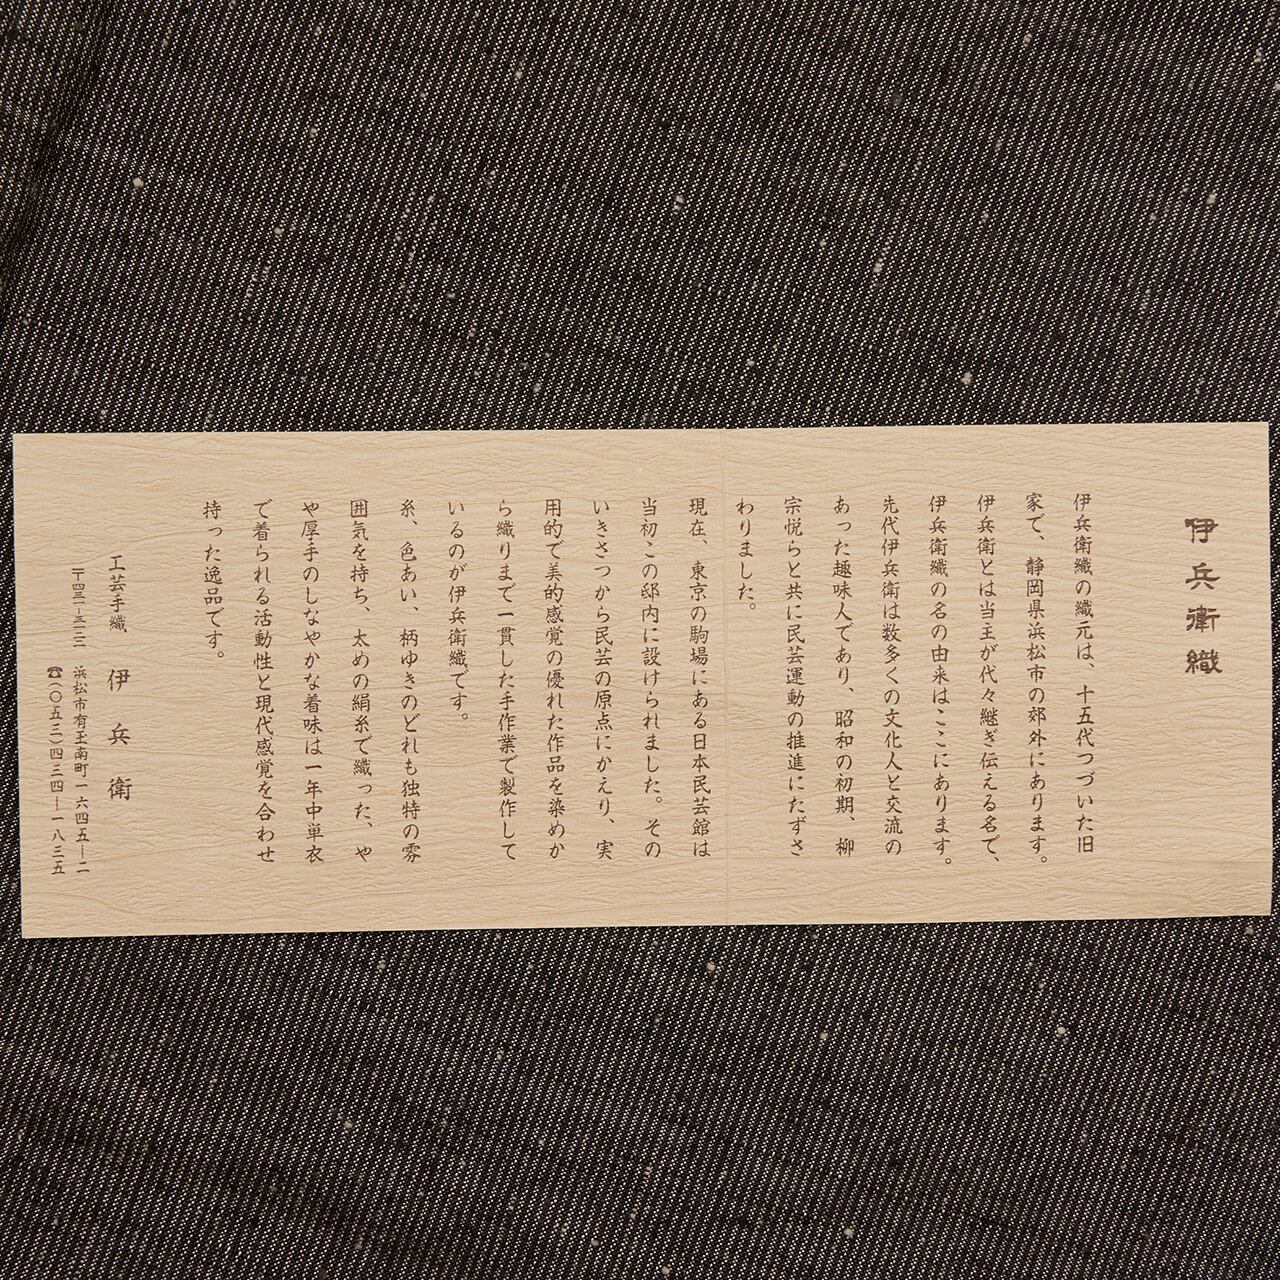 伊兵衛織
伊兵衛織の織元は、十五代つづいた旧
家で、静岡県浜松市の郊外にあります。
伊兵衛とは当主が代々継ぎ伝える名で、
伊兵衛織の名の由来はここにあります。
先代伊兵衛は数多くの文化人と交流の
あった趣味人であり、昭和の初期、柳
宗悦らと共に民芸運動の推進にたずさ
わりました。
現在、東京の駒場にある日本民芸館は
当初この邸内に設けられました。その
いきさつから民芸の原点にかえり、実
用的で美的感覚の優れた作品を染めか
ら織りまで一貫した手作業で製作して
いるのが伊兵衛織です。
糸、色あい、柄ゆきのどれも独特の雰
囲気を持ち、太めの絹糸で織った、や
や厚手のしなやかな着味は一年中単衣
で着られる活動性と現代感覚を合わせ
持った逸品です。
工芸手織 伊兵衛
〒四三一-三一二二 浜松市有玉南町一六四五―二
☎(〇五三)四三四―一八三五